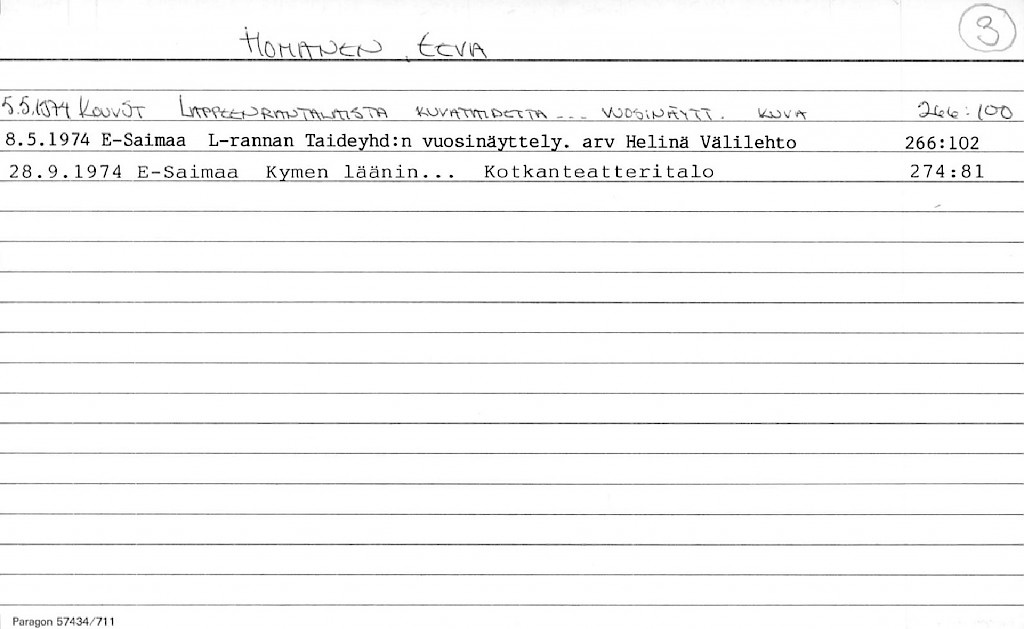 3
HOMANEN, EEVA
5.5.1974 KOUVST LAPPEENRANTALAISTA KUVATAIDETTA --- VUOSINÄYTT. KUVA 266:100
8.5.1974 E-Saimaa L-rannan Taideyhd:n vuosinäyttely. arv Helinä Välilehto 266:102
28.9.1974 E-Saimaa Kymen läänin... Kotkanteatteritalo 274:81
Paragon 57434/711